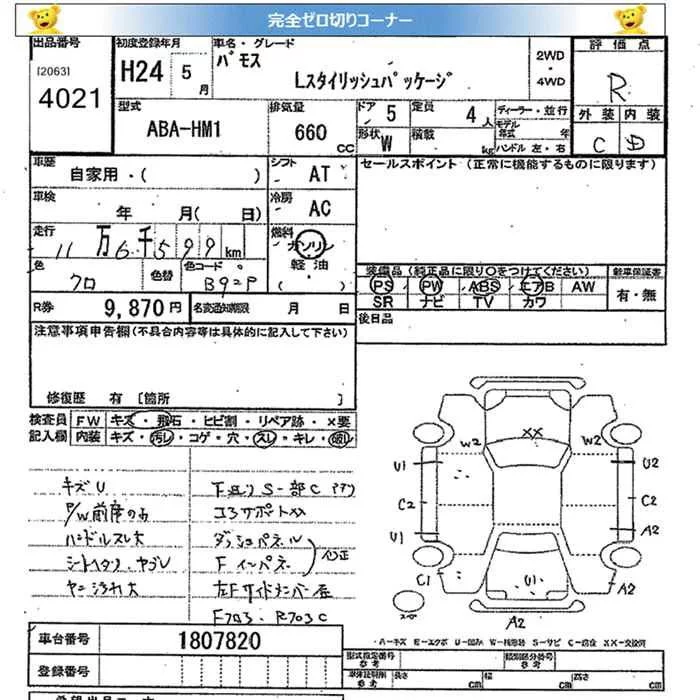 完全ゼロ切りコーナー
出品番号 初度登録年月 車名・グレード 評価点
[2063] 4021 H24 5月 バモス Lスタイリッシュパッケージ 2WD 4WD R
型式 排気量 ドア 5 定員 4人 ディーラー・並行 外装 内装
ABA-HM1 660 CC 形状 W 積載 kg モデル年式 年 ハンドル 左・右 C D
車歴 自家用・( ) シフト AT セールスポイント (正常に機能するものに限ります)
車検 年 月(日) 冷房 AC
走行 11万6千599km 燃料 ガソリン
色 クロ 色替 色コード B92P 軽油 ( )
装備品 (純正品に限り○をつけてください) 新車保証書
PS PW ABS エアB AW 有・無
SR ナビ TV カワ
R券 9,870円 名変通知期限 月 日 後日品
注意事項申告欄 (不具合内容等は具体的に記入して下さい)
修復歴 有 [箇所 ]
検査員 FW キズ・飛石・ヒビ割・リペア跡・×要
記入欄 内装 キズ・汚レ・コゲ・穴・スレ・キレ・破レ
キズU
P/W前席のみ
ハンドルスレ大
シートヘタリ、ヤブレ
ヤニ汚れ大
下廻りS一部C
コアサポートXX
ダッシュパネル
Fインパネ
左Fサイドメンバー
XX
W2 W2
U1 U2
C2 C2
U1 A2
C1 U1 A2
A2
A-キズ E-エクボ U-凹み W-補修跡 S-サビ C-腐食 XX-交換済
車台番号 1807820
登録番号
型式指定番号 参考 類別区分番号 参考
車体証明用 参考 長さ cm 幅 cm 高さ cm